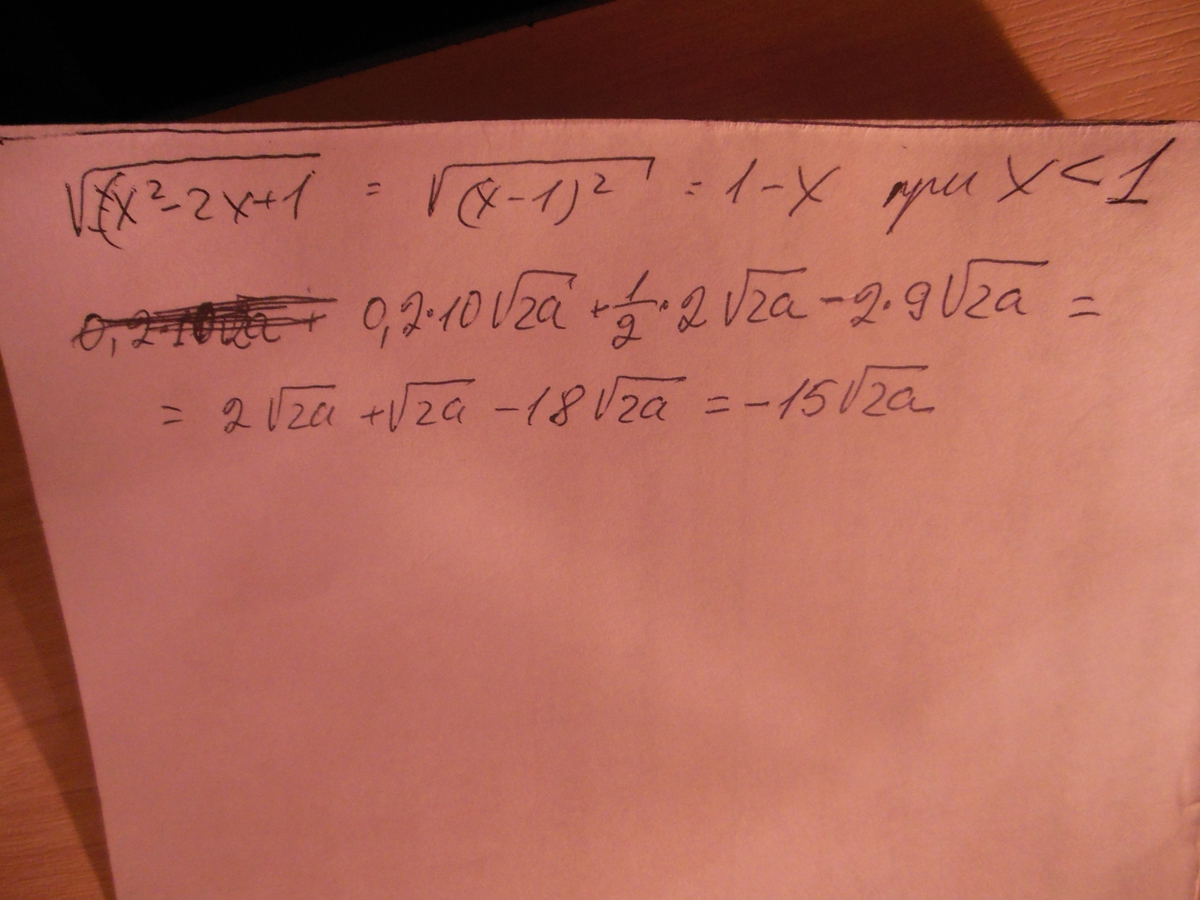 √(x²-2x+1 = √(x-1)² = 1-x при x<1
0,2·10√2a + 1/2·2√2a - 2·9√2a =
= 2√2a + √2a - 18√2a = -15√2a